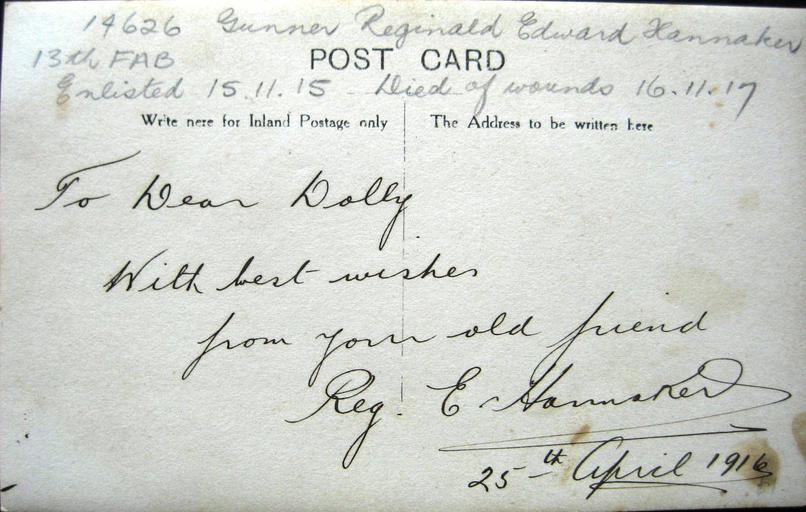 14626 Gunner Reginald Edward Hannaker
13th FAB
POST CARD
Enlisted 15.11.15 - Died of wounds 16.11.17
Write here for Inland Postage only
The Address to be written here
To Dear Dolly
With best wishes
from your old friend
Reg. E. Hannaker
25th April 1916